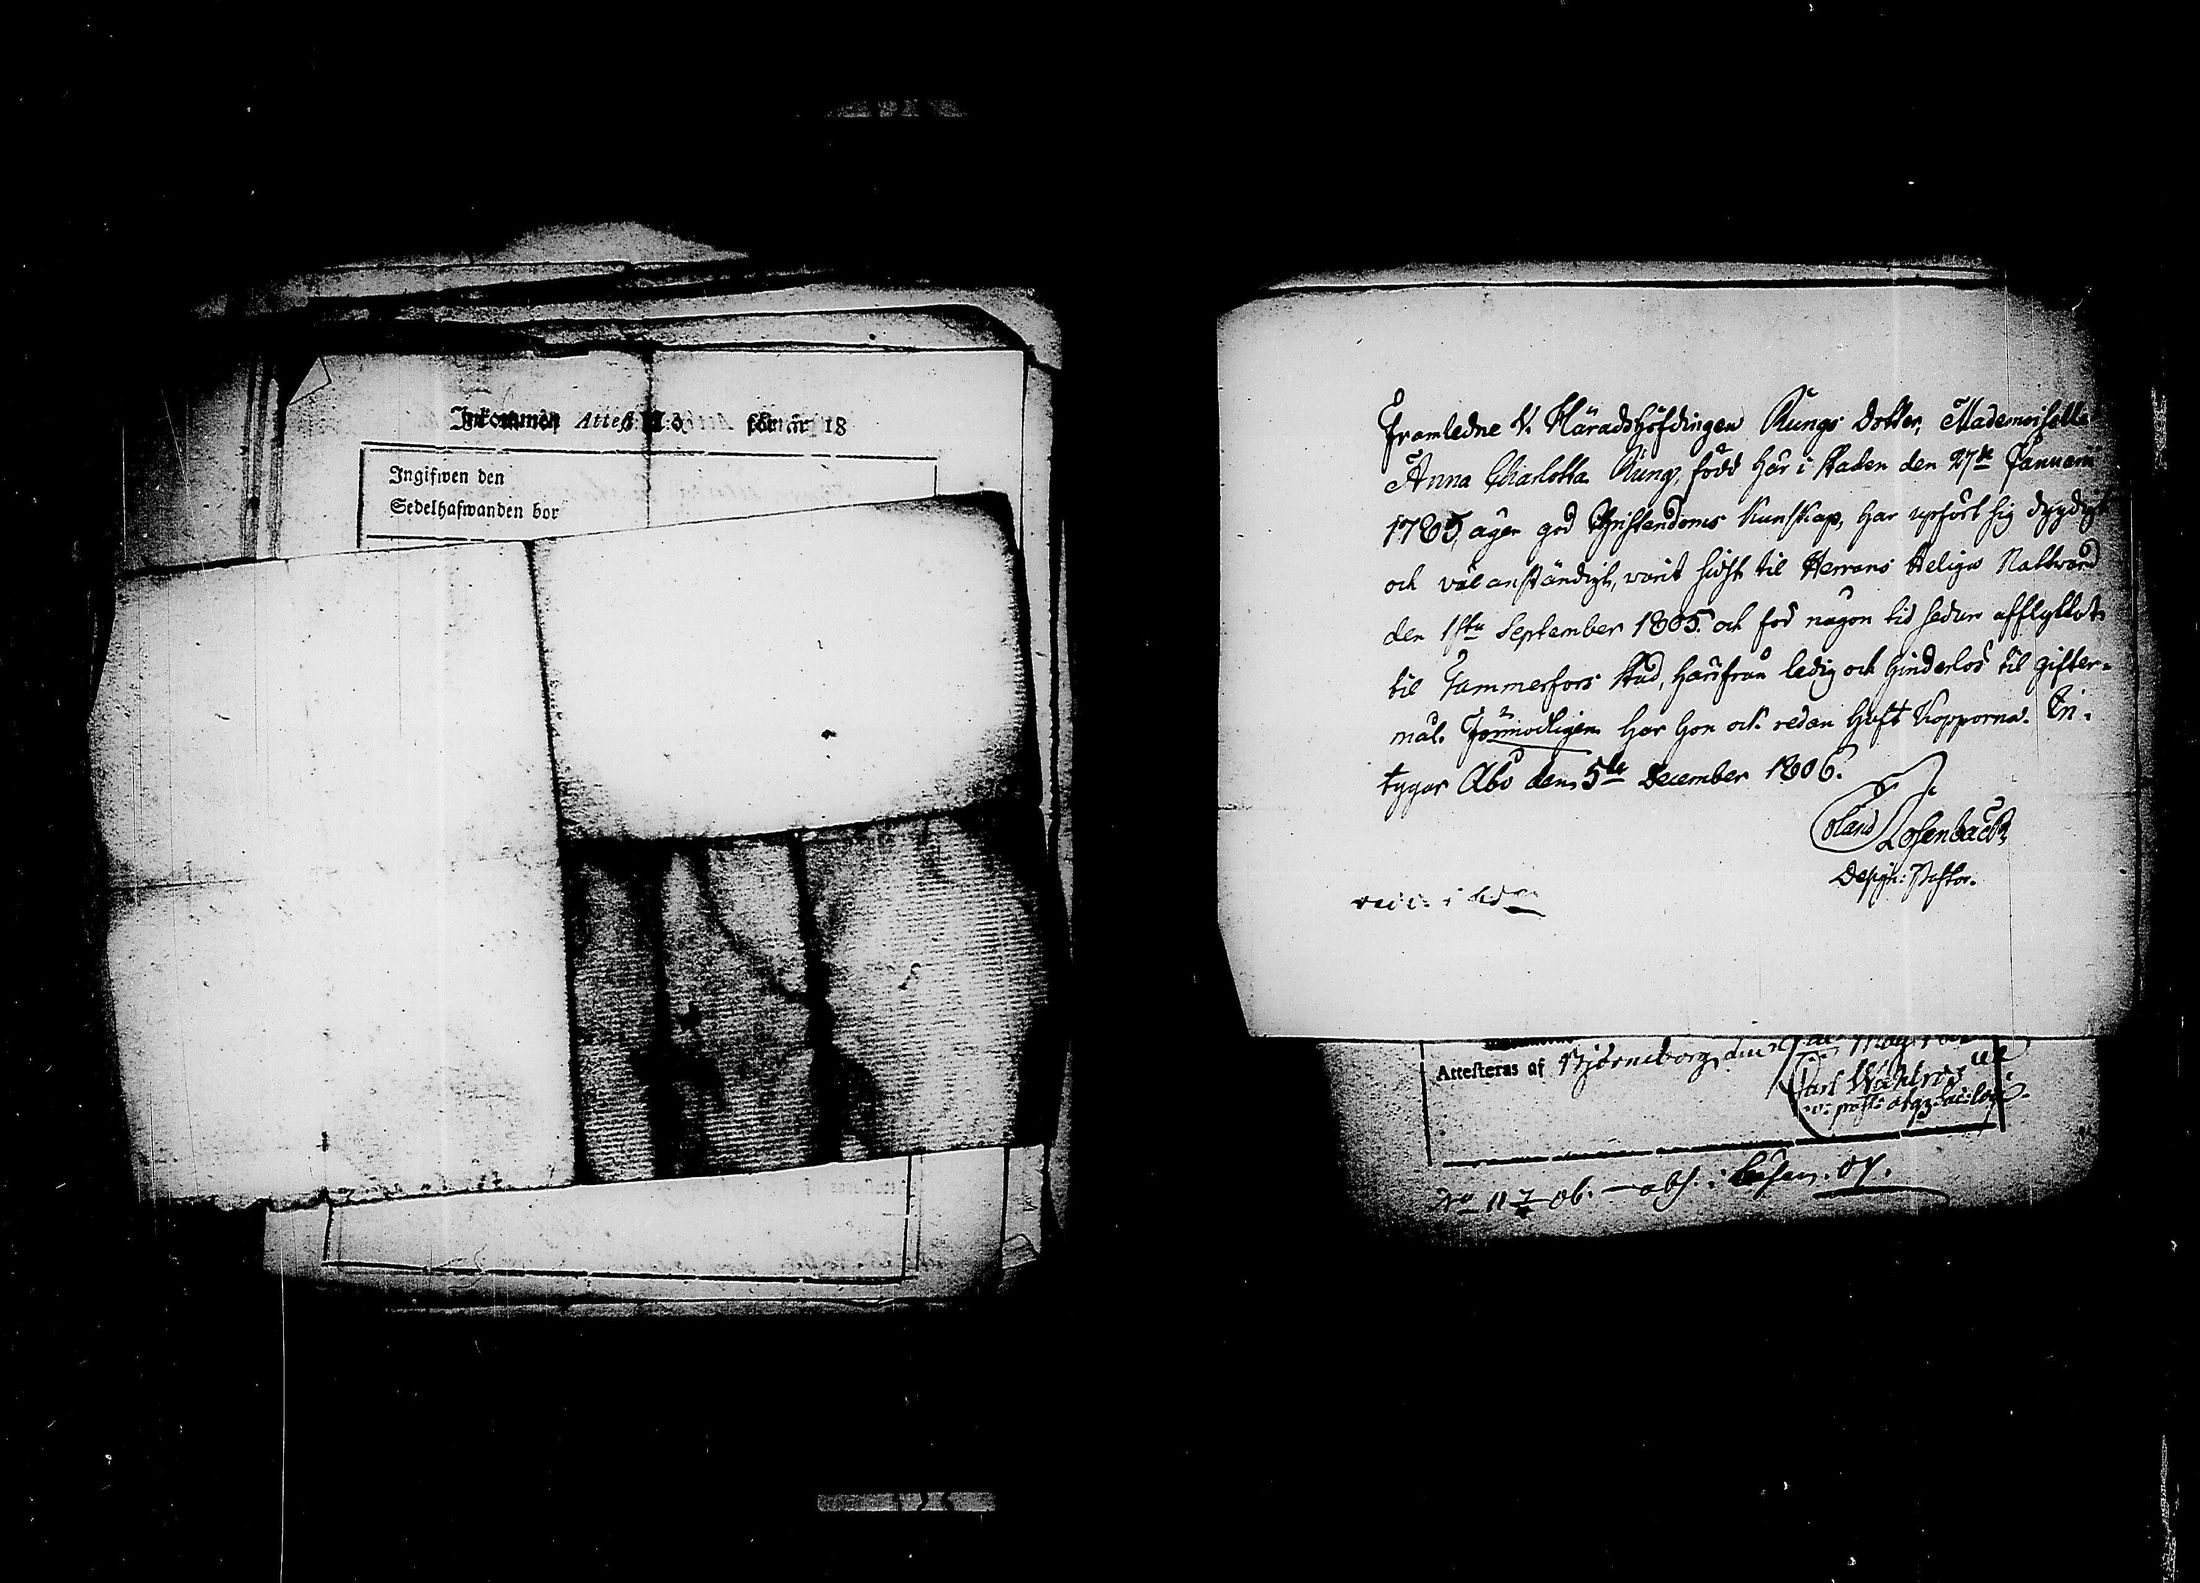 Inkommen Attest N:o för år 18
Ingifwen den
Sedelhafwanden bor
Framledne V. Häradshöfdingen Rungs Dotter, Mademoiselle
Anna Charlotta Rung, född här i staden den 27de Januarii
1785, äger god Christendoms Kunskap, har upfört sig dygdigt
och väl anständigt, varit sidst til Herrans Heliga Nattvard
den 1sta September 1805. och för någon tid sedan afflyttat
til Tammerfors stad, härifrån ledig och hinderlös til gifter-
mål. Förmodligen har hon ock redan haft Kopporna. In-
tygar Åbo den 5te December 1806.
Rosenback
Design: Pastor.
Attesteras af Björneborg, den
Carl Wahlroos
No 11 06. obs. i 07.